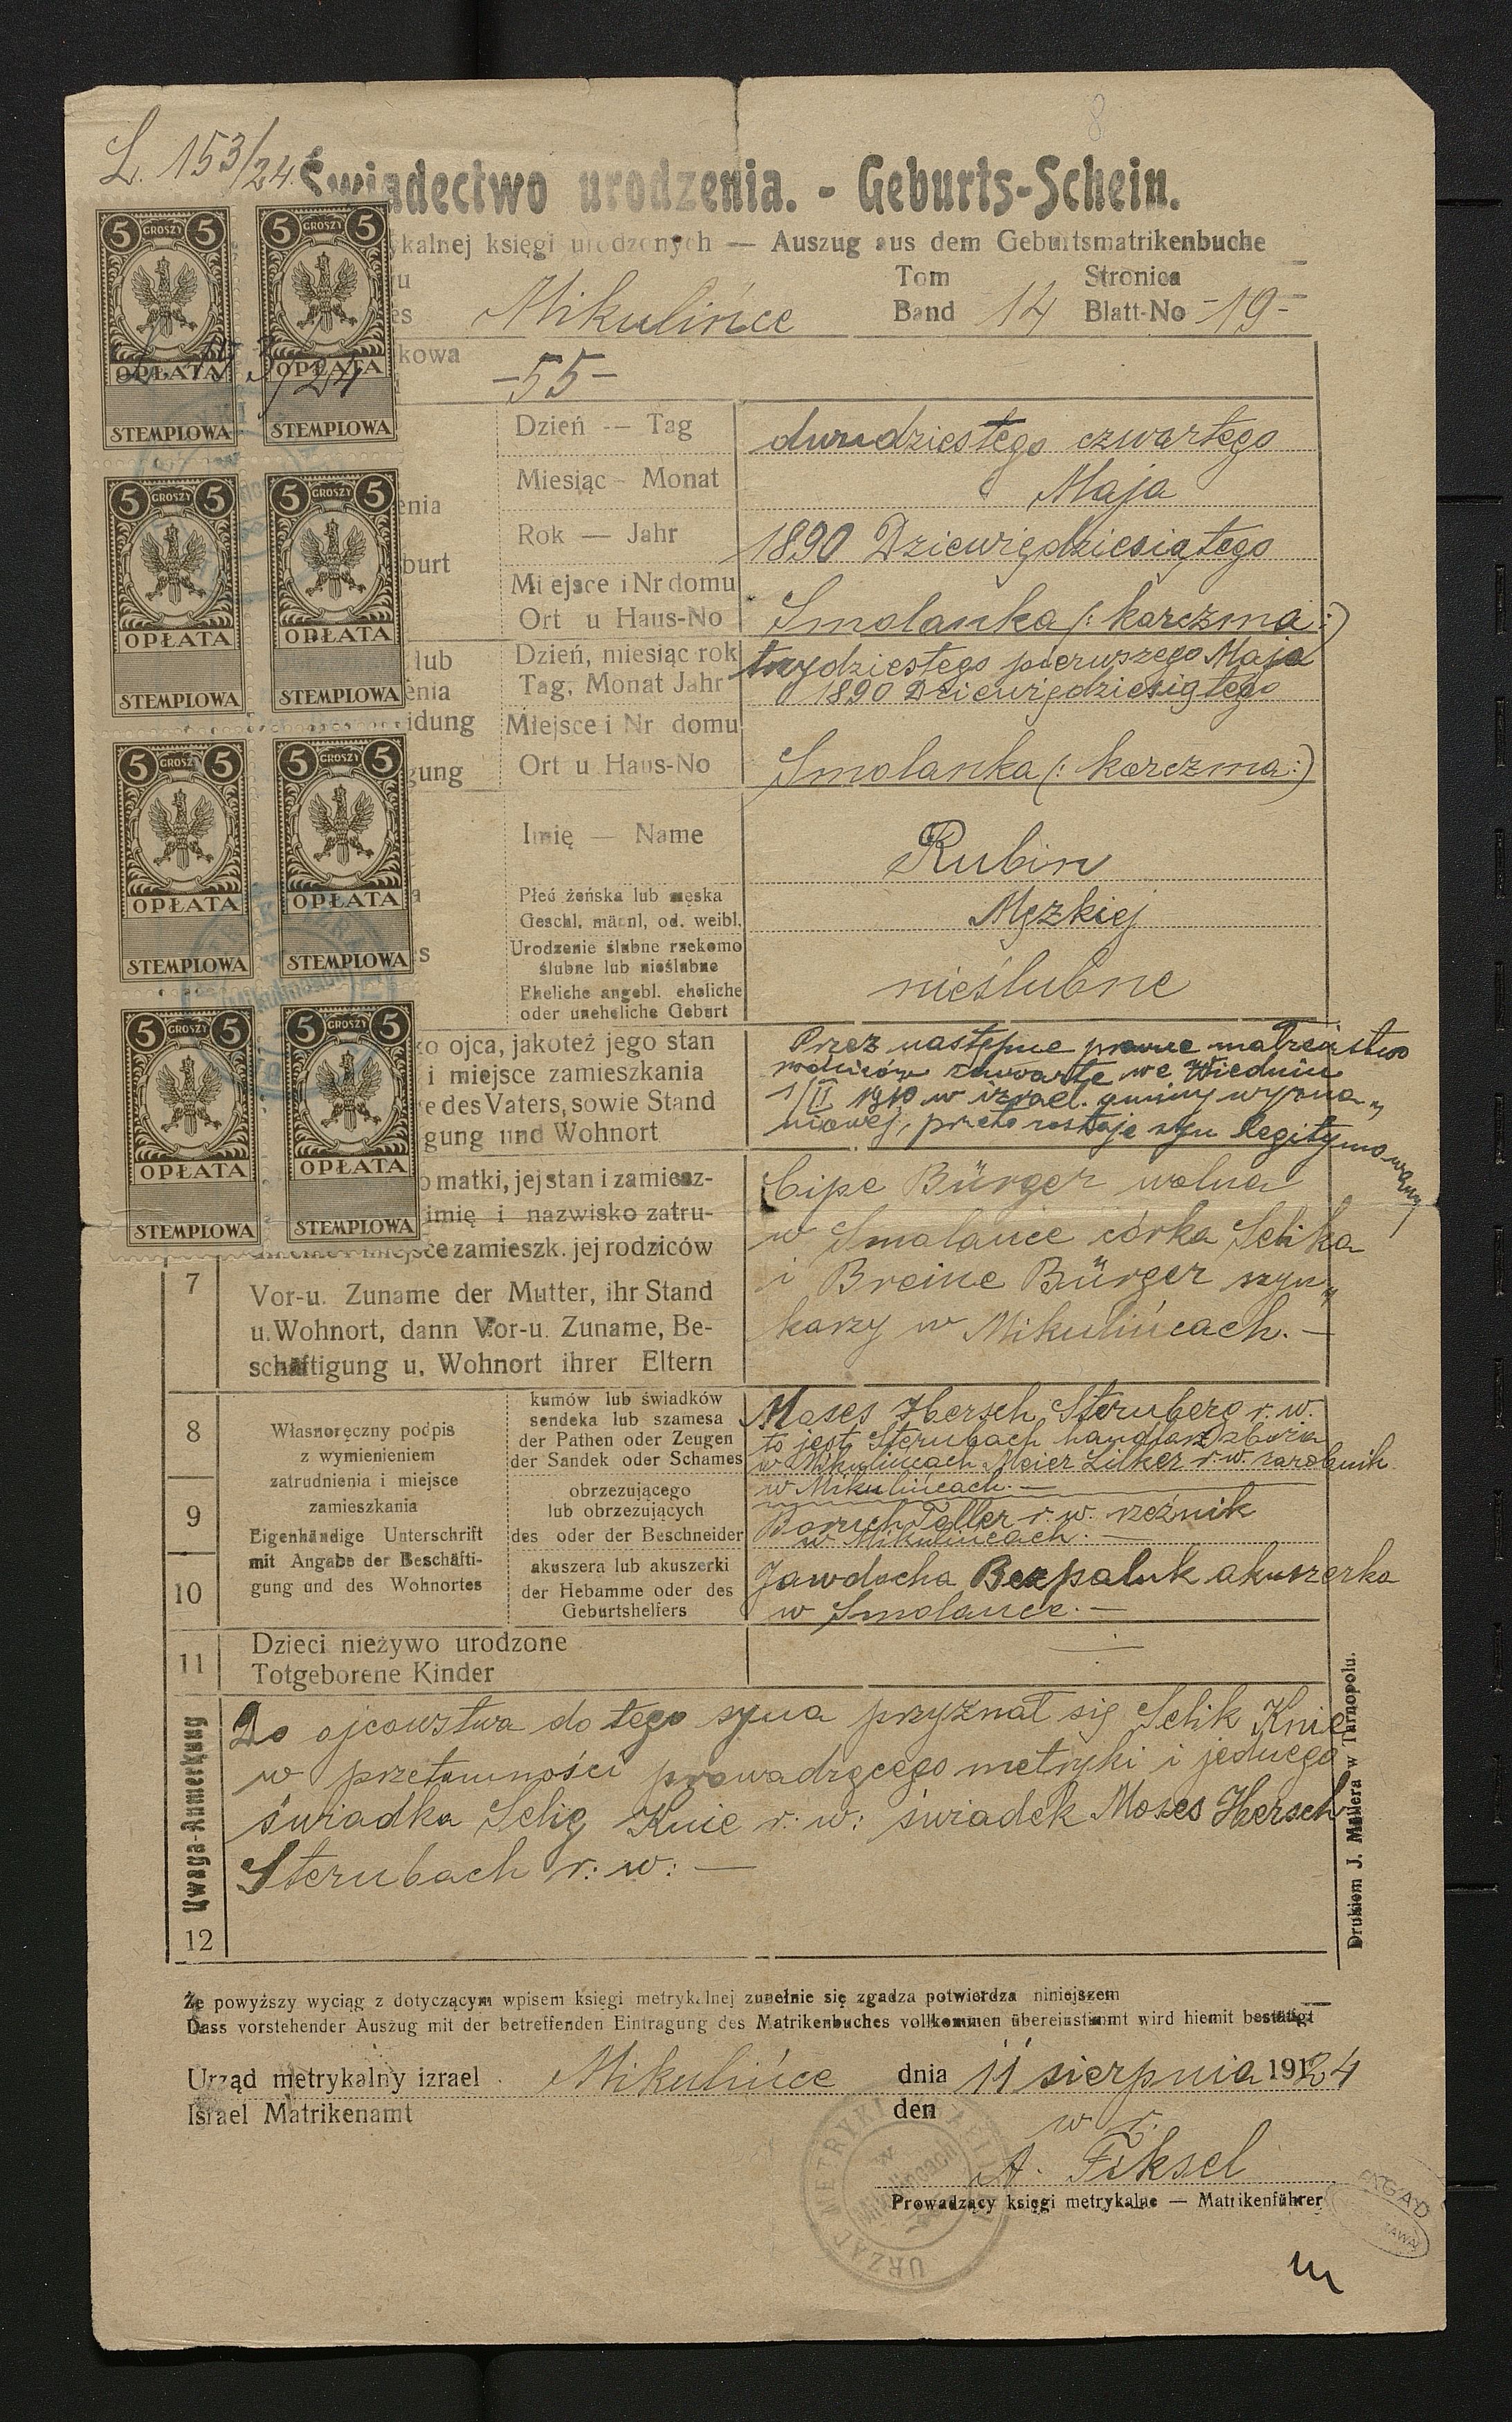 8
L. 153/24.
Świadectwo urodzenia. - Geburts-Schein.
kalnej księgi urodzonych — Auszug aus dem Geburtsmatrikenbuche
Mikulińce
Tom Stronica
Band 14 Blatt-No -19-
kowa
-55-
Dzień -- Tag
dwudziestego czwartego
Miesiąc - Monat
Maja
enia
Rok — Jahr
1890 Dziewiędziesiątego
burt
Miejsce i Nr domu
Ort u Haus-No
Smolanka (: karczma :)
lub
Dzień, miesiąc rok
trzydziestego pierwszego Maja
enia
Tag, Monat Jahr
1890 Dziewiędziesiątego
idung
Miejsce i Nr domu
gung
Ort u Haus-No
Smolanka (: karczma :)
Imię — Name
Rubin
Płeć żeńska lub męska
Geschl, männl, od. weibl.
Męzkiej
Urodzenie ślubne rzekomo
ślubne lub nieślubne
Eheliche angebl. eheliche
oder uneheliche Geburt
nieślubne
ko ojca, jakoteż jego stan
i miejsce zamieszkania
e des Vaters, sowie Stand
gung und Wohnort
Przez następne prawne małżeństwo
rodziców zawarte we Wiedniu
1/II 1910 w izrael. gminy wyzna„
niowej, przeto zostaje syn legitymowany
o matki, jej stan i zamiesz-
imię i nazwisko zatru-
miejsce zamieszk. jej rodziców
7
Vor-u. Zuname der Mutter, ihr Stand
u. Wohnort, dann Vor-u. Zuname, Be-
schäftigung u, Wohnort ihrer Eltern
Cipe Bürger wolna
w Smolance córka Selika
i Breine Bürger szyn„
karzy w Mikulińcach. —
8
9
10
Własnoręczny podpis
z wymienieniem
zatrudnienia i miejsce
zamieszkania
Eigenhändige Unterschrift
mit Angabe der Beschäfti-
gung und des Wohnortes
kumów lub świadków
sendeka lub szamesa
der Pathen oder Zeugen
der Sandek oder Schames
Moses Hersch Sternberg r. w.
to jest Sternbach handlarz zboża
w Mikulińcach Meier Zilker r. w. zarobnik
w Mikulińcach. —
obrzezującego
lub obrzezujących
des oder der Beschneider
Baruch Teller r. w. rzeźnik
w Mikulińcach. —
akuszera lub akuszerki
der Hebamme oder des
Geburtshelfers
Jawdocha Bezpaluk akuszerka
w Smolance. —
11
Dzieci nieżywo urodzone
Totgeborene Kinder
Uwaga-Anmerkung
12
Do ojcowstwa do tego syna przyznał się Selik Knie
w przetomności prowadzącego metryki i jednego
świadka Selig Knie r. w: świadek Moses Hersch
Sternbach r: w: —
Drukiem J. Mallera w Tarnopolu.
Że powyższy wyciąg z dotyczącym wpisem księgi metrykalnej zupełnie się zgadza potwierdza niniejszem
Dass vorstehender Auszug mit der betreffenden Eintragung des Matrikenbuches vollkommen übereinstimmt wird hiemit bestätigt
Urząd metrykalny izrael. Mikulińce dnia 11 sierpnia 1924
Israel Matrikenamt den
w z.
A. Fiksel
Prowadzący księgi metrykalne — Matrikenführer
URZĄD METRYKALNY
w
Mikulińcach
AGAD
5 GROSZY 5
OPŁATA
STEMPLOWA
5 GROSZY 5
OPŁATA
STEMPLOWA
5 GROSZY 5
OPŁATA
STEMPLOWA
5 GROSZY 5
OPŁATA
STEMPLOWA
5 GROSZY 5
OPŁATA
STEMPLOWA
5 GROSZY 5
OPŁATA
STEMPLOWA
5 GROSZY 5
OPŁATA
STEMPLOWA
5 GROSZY 5
OPŁATA
STEMPLOWA